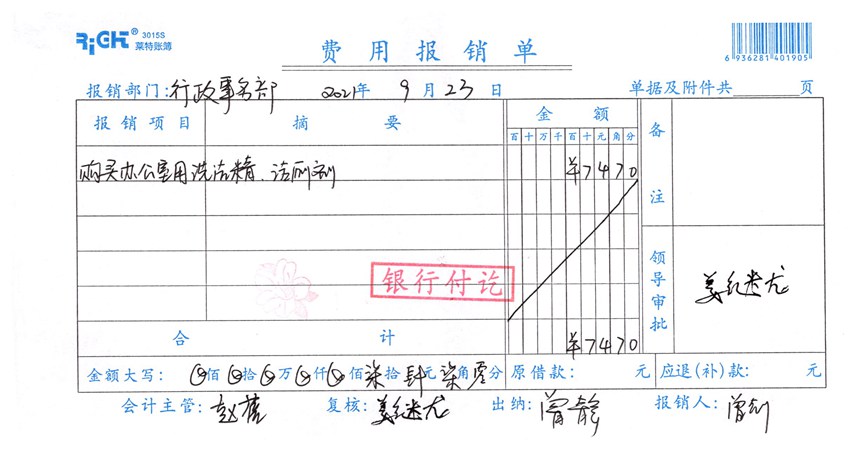 RiGHT® 3015S
莱特账簿
费用报销单
6 936281 401905
报销部门:行政事务部 2021年 9月23日 单据及附件共 页
报销项目 摘要 金额 备注
百十万千百十元角分
购买办公室用洗洁精、洁厕剂 ¥7470
银行付讫
领导审批
合计 ¥7470
金额大写: 佰 拾 万 仟 佰柒拾肆元柒角零分 原借款: 元 应退(补)款: 元
会计主管: 赵 复核: 姜红龙 出纳: 曾静 报销人: 曾